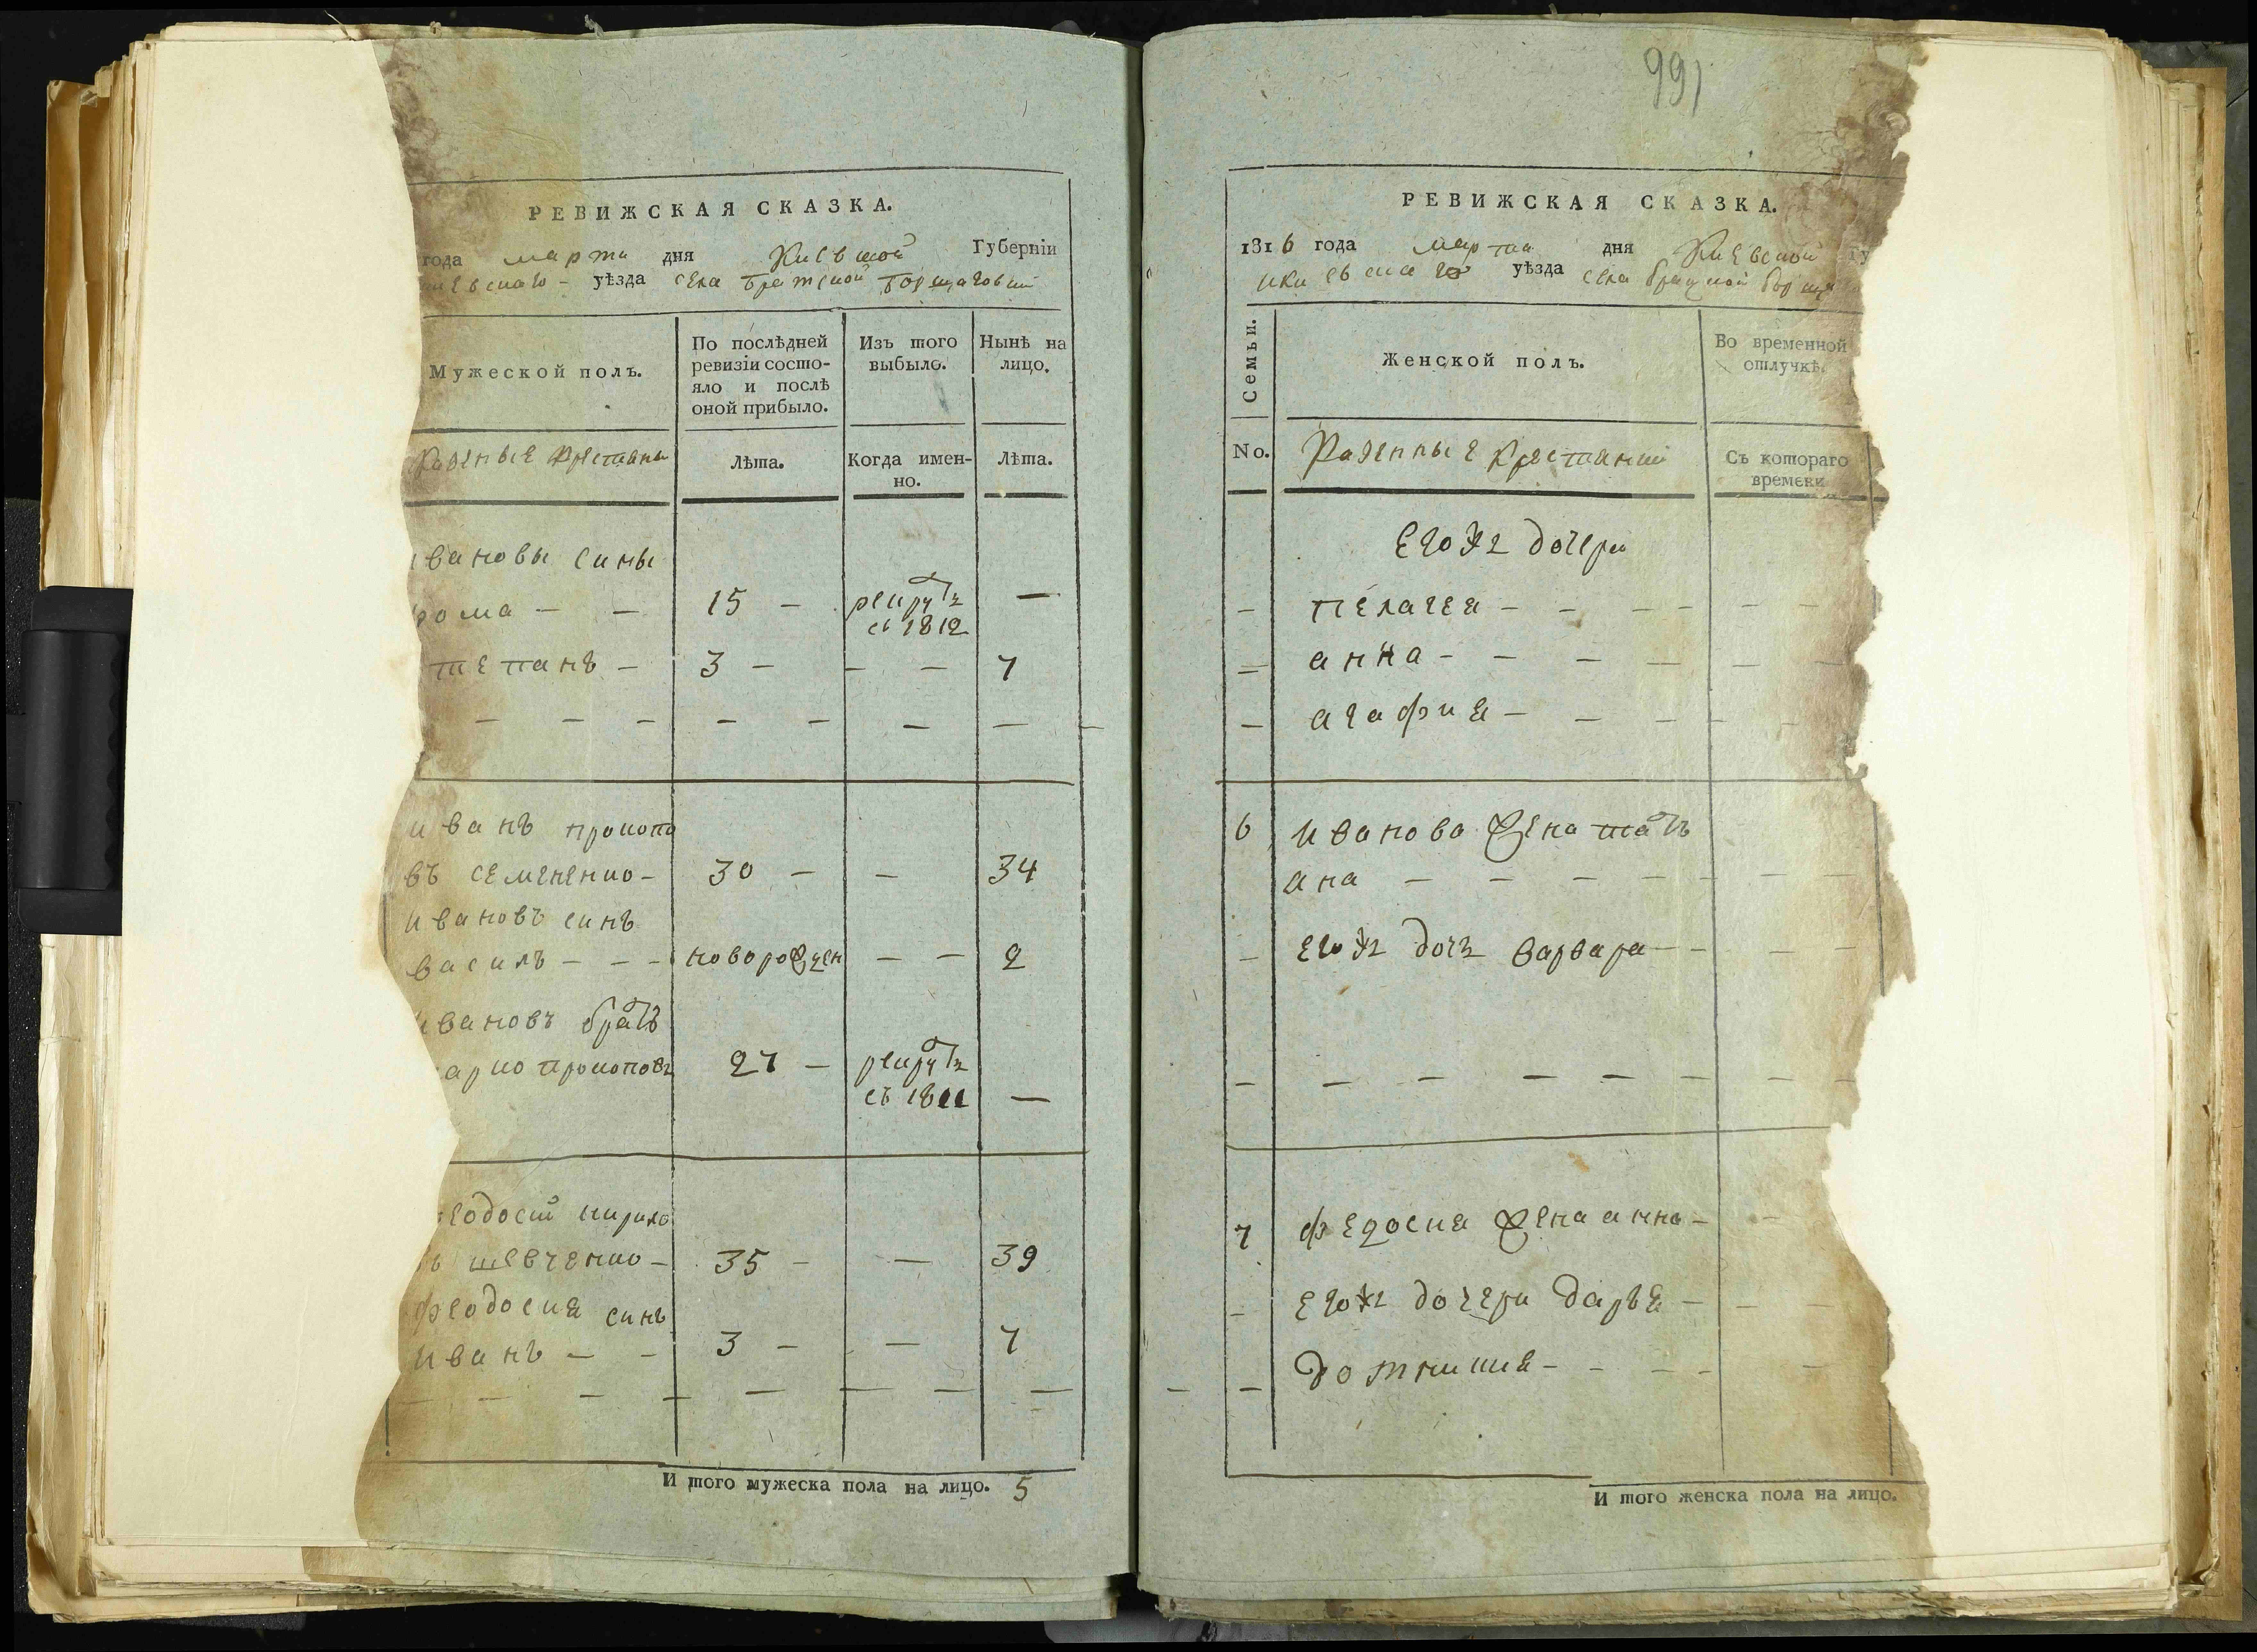 РЕВИЖСКАЯ СКАЗКА.
года марта дня Киевской Губернїи
уѣзда села Братской Борщаговки
Мужеской полъ.
По послѣдней ревизїи состо-
яло и послѣ
оной прибыло.
Изъ того выбыло.
Нынѣ на лицо.
Казенные крестяны
Лѣта.
Когда имен-
но.
Лѣта.
вановы сины
рома — — 15 — рекрутъ —
съ 1812
тепанъ — 3 — — — 7
— — — — — — —
иванъ прокопо
въ семененко — 30 — — 34
ивановъ синъ
василь — — — новорожден — — 2
ивановъ братъ
арко прокоповъ 27 — рекрутъ
съ 1811 —
еодосій кирило
въ шевченко — 35 — — 39
феодосия синъ
иванъ — — 3 — — 7
— — — — — — —
И того мужеска пола на лицо. 5
991
РЕВИЖСКАЯ СКАЗКА.
1816 года мартаа дня Киевской Гу
уѣзда села брацкой борща
Семьи.
Женской полъ.
Во временной
отлучкѣ.
No.
Казенные крестянки
Съ котораго
времени
егожъ дочери
— пелагея — — — — — —
— анна — — — — — —
— агафия — — — — —
6 иванова жена татъ
ана — — — — — — —
— егожъ дочъ варвара — — — —
— — — — — — — —
7 федосия жена анна — —
— егожъ дочери даръя — — —
— домникия — — — — —
И того женска пола на лицо.